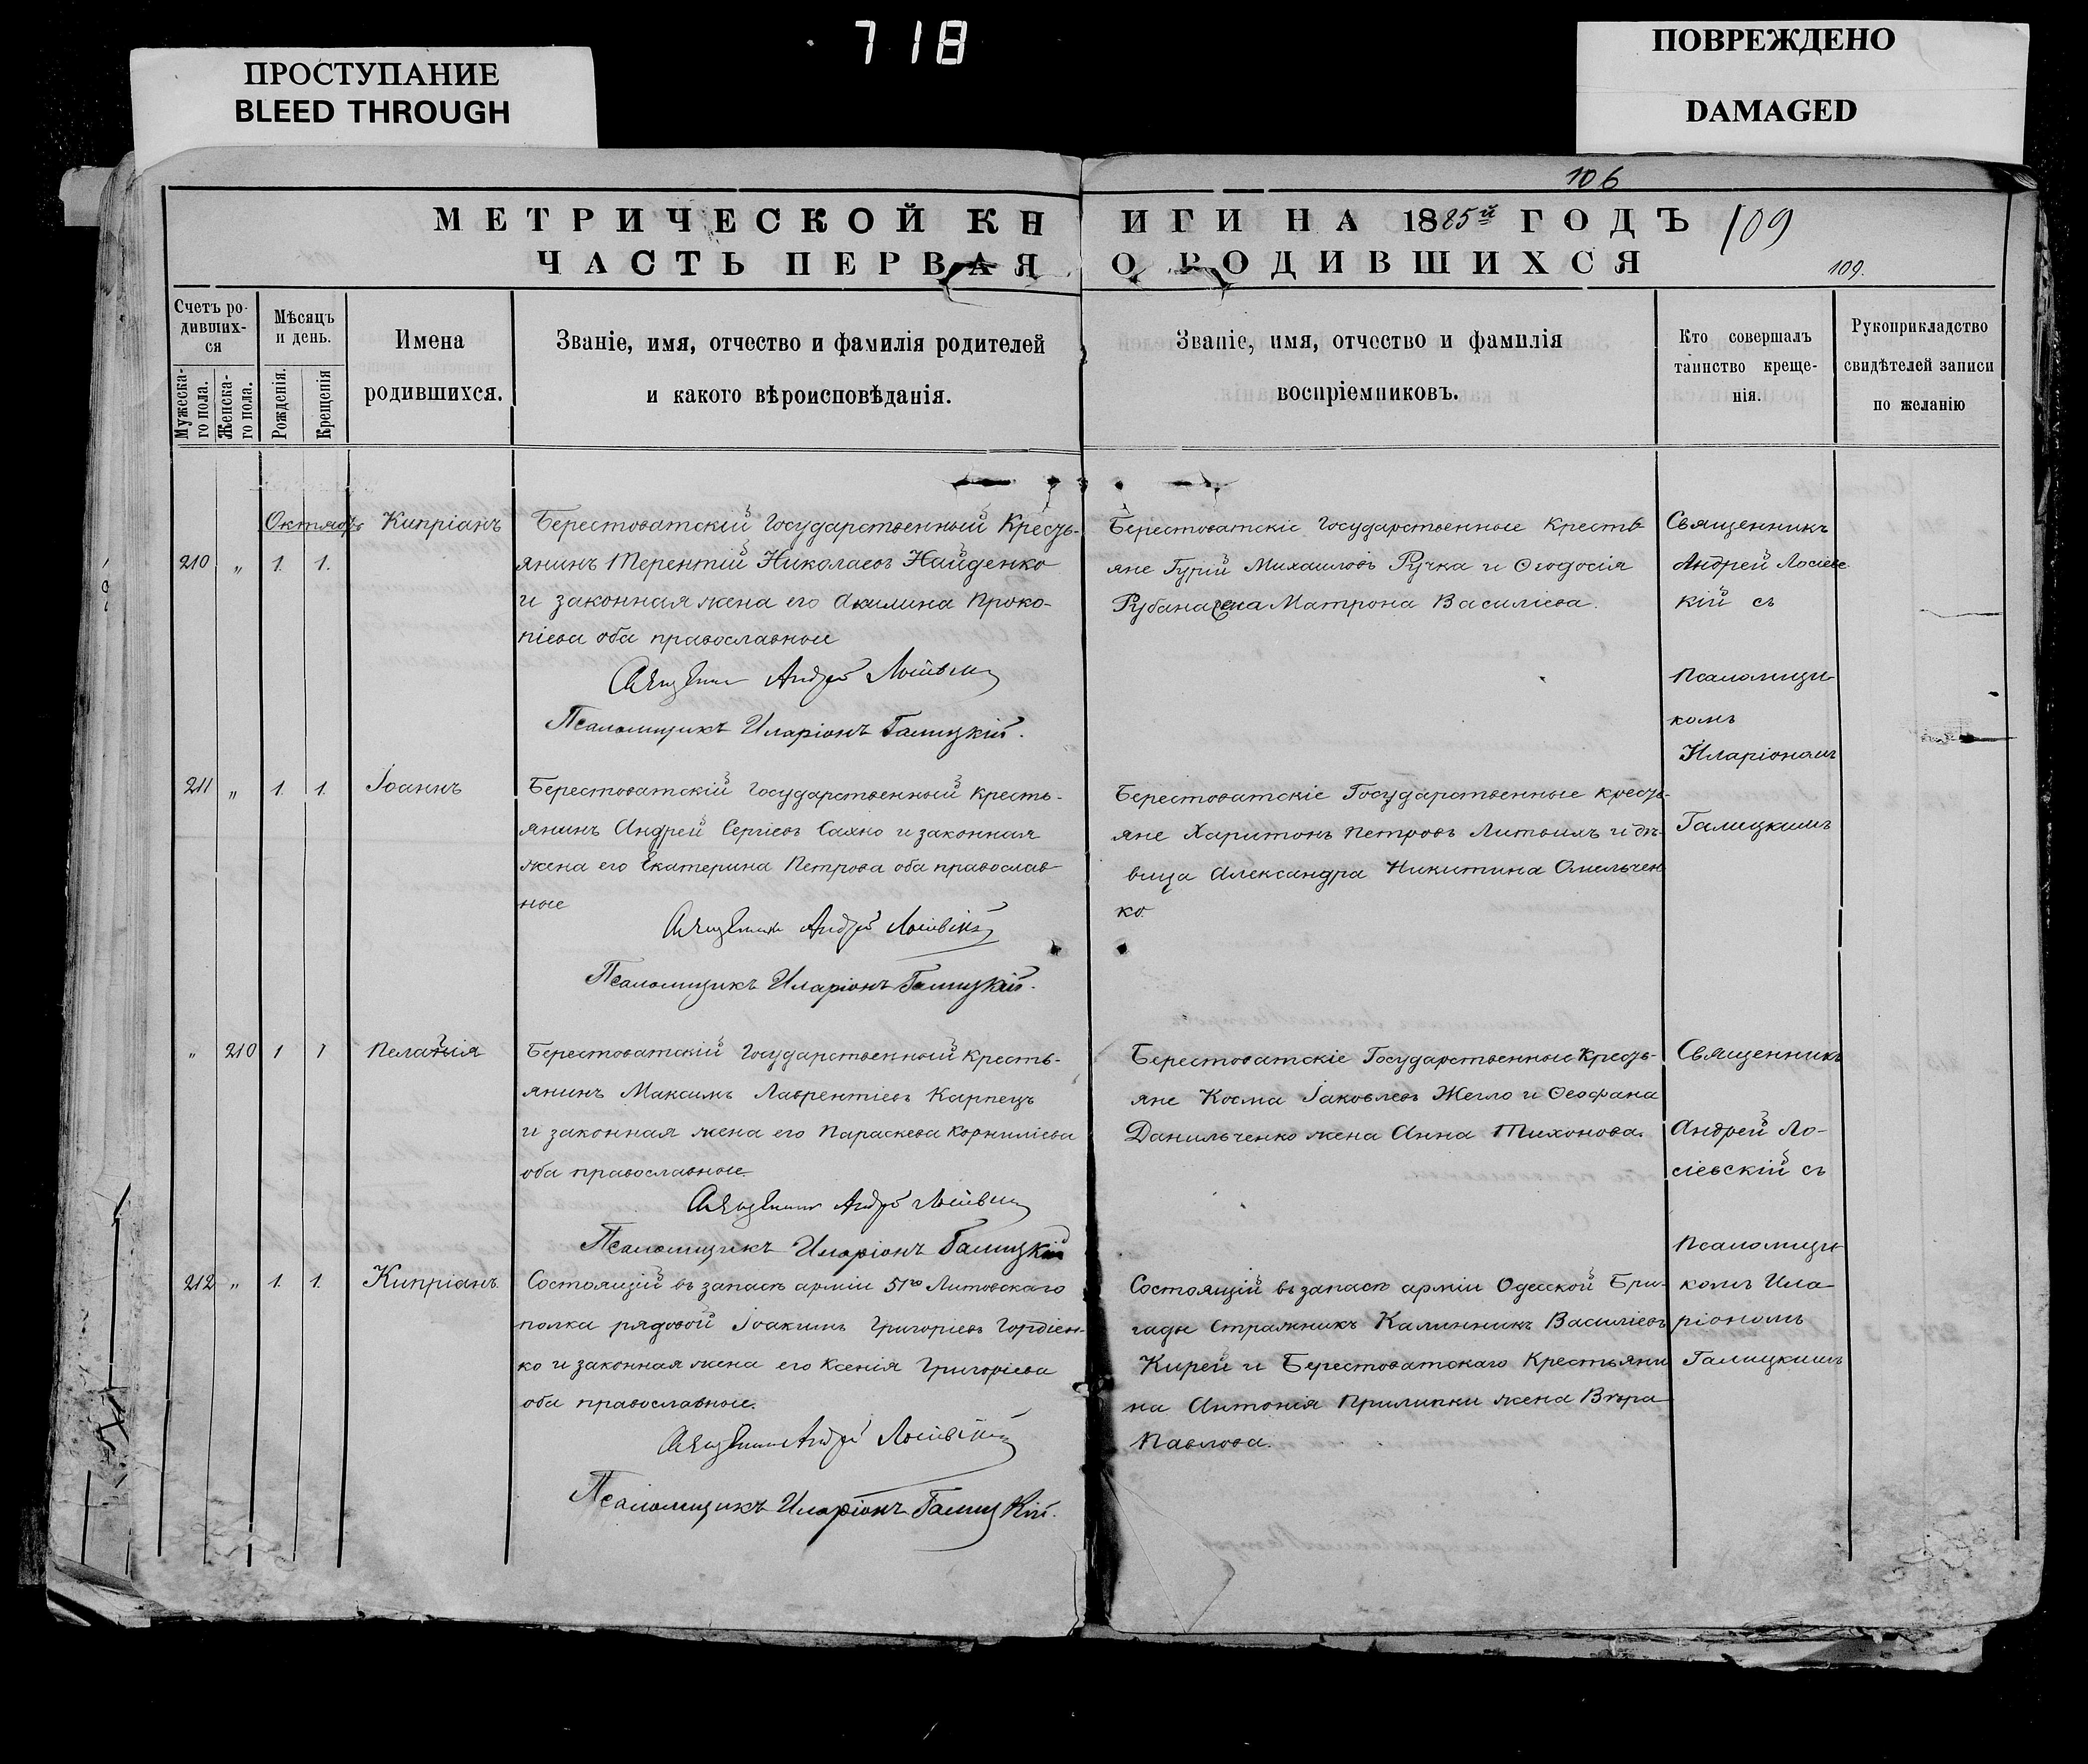 718
ПРОСТУПАНИЕ
BLEED THROUGH
ПОВРЕЖДЕНО
DAMAGED
106
МЕТРИЧЕСКОЙ КНИГИ НА 1885й ГОДЪ
109
ЧАСТЬ ПЕРВАЯ О РОДИВШИХСЯ
109.
Счетъ ро-
дивших-
ся
Мужеска-
го пола.
Женска-
го пола.
Мѣсяцъ
и день.
Рожденія.
Крещенія
Имена
родившихся.
Званіе, имя, отчество и фамилія родителей
и какого вѣроисповѣданія.
Званіе, имя, отчество и фамилія
воспріемниковъ.
Кто совершалъ
таинство креще-
нія.
Рукоприкладство
свидѣтелей записи
по желанію
Октябрь
210 " 1. 1.
Кипріанъ
Берестоватскій Государственный Кресть-
янинъ Терентій Николаевъ Найденко
и законная жена его Акилина Проко-
піева оба православные
Священникъ Андрей Лосіевскій
Псаломщикъ Иларіонъ Галицкій.
Берестоватскіе Государственные кресть-
яне Гурій Михаиловъ Ручка и Ѳеодосія
Рубана жена Матрона Василіева.
Священникъ
Андрей Лосіевс
кій съ
Псаломщи-
комъ
Иларіономъ
Галицкимъ
211 " 1. 1.
Іоаннъ
Берестоватскій Государственный кресть-
янинъ Андрей Сергіевъ Сахно и законная
жена его Екатерина Петрова оба православ
ные
Священникъ Андрей Лосіевскій
Псаломщикъ Иларіонъ Галицкій.
Берестоватскіе Государственные кресть-
яне Харитонъ Петровъ Литвинъ и дѣ-
вица Александра Никитина Омельчен
ко.
" 210 1 1
Пелагія
Берестоватскій Государственный кресть-
янинъ Максимъ Лаврентіевъ Карпецъ
и законная жена его Параскева Корниліева
оба православные.
Священникъ Андрей Лосіевскій
Псаломщикъ Иларіонъ Галицкій
Берестоватскіе Государственные Кресть-
яне Косма Іаковлевъ Жегло и Ѳеофана
Данильченко жена Анна Тихонова.
Священникъ
Андрей Ло-
сіевскій съ
Псаломщи-
комъ Ила-
ріономъ
Галицкимъ
212 " 1. 1.
Кипріанъ.
Состоящій въ запасѣ арміи 51го Литовскаго
полка рядовой Іоакимъ Григоріевъ Гордіен-
ко и законная жена его Ксенія Григоріева
оба православные.
Священникъ Андрей Лосіевскій
Псаломщикъ Иларіонъ Галицкій.
Состоящій въ запасѣ арміи Одесской Бри-
гады Стражникъ Калинникъ Василіевъ
Кирей и Берестоватскаго Крестьяни
на Антонія Прилипки жена Вѣра
Павлова.